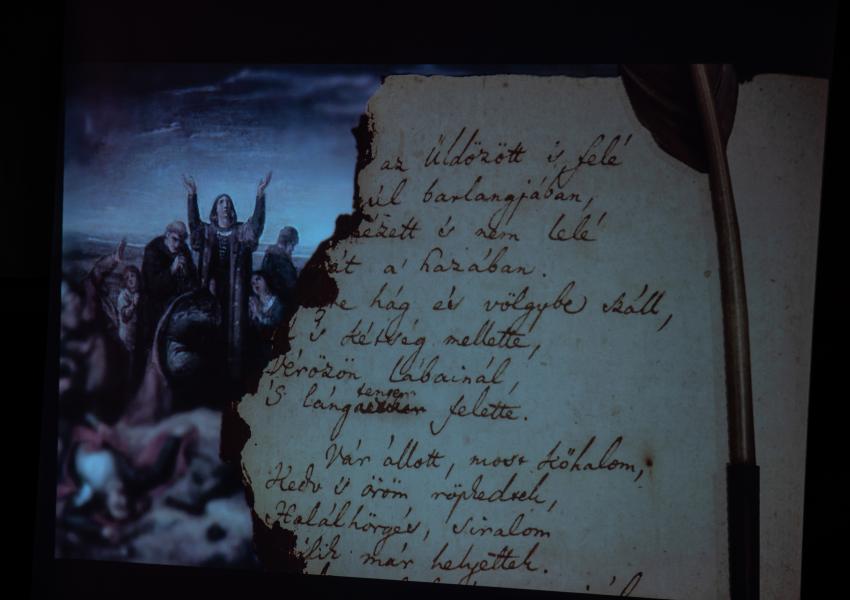 az üldözött 's felé
úl barlangjában,
ézett 's nem lelé
át a' hazában.
re hág és völgybe száll,
's kétség mellette,
Vérözön lábainál,
'S lángtenger felette.
Vár állott, most kőhalom,
Kedv 's öröm röpkedtek,
Halálhörgés, siralom
lik már helyettek.